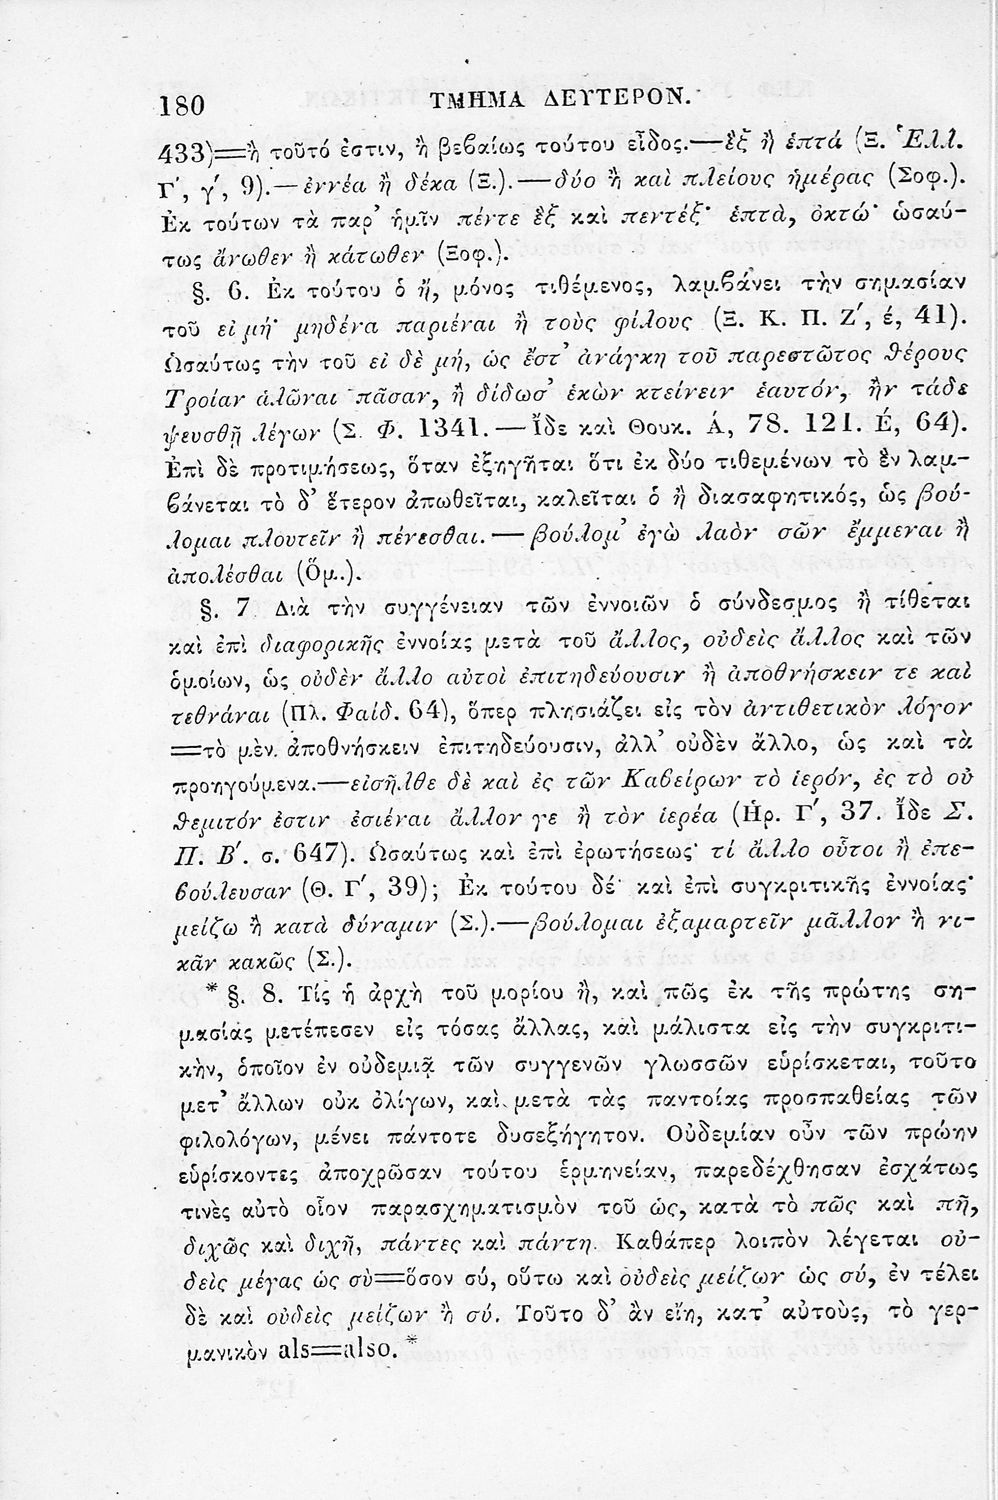 180 ΤΜΗΜΑ ΔΕΥΤΕΡΟΝ.
433)=ἢ τοῦτό ἐστιν, ἢ βεβαίως τούτου εἶδος.—ἓξ ἢ ἑπτά (Ξ. Ἑλλ.
Γ', γ', 9).—ἐννέα ἢ δέκα (Ξ.).—δύο ἢ καὶ πλείους ἡμέρας (Σοφ.).
Ἐκ τούτων τὰ παρ' ἡμῖν πέντε ἓξ καὶ πεντέξ· ἑπτὰ, ὀκτώ· ὡσαύ-
τως ἄνωθεν ἢ κάτωθεν (Ξοφ.).
§. 6. Ἐκ τούτου ὁ ἤ, μόνος τιθέμενος, λαμβάνει τὴν σημασίαν
τοῦ εἰ μή· μηδένα παριέναι ἢ τοὺς φίλους (Ξ. Κ. Π. Ζ', έ, 41).
Ὡσαύτως τὴν τοῦ εἰ δὲ μή, ὡς ἔστ' ἀνάγκη τοῦ παρεστῶτος θέρους
Τροίαν ἁλῶναι πᾶσαν, ἢ δίδωσ' ἑκὼν κτείνειν ἑαυτόν, ἢν τάδε
ψευσθῇ λέγων (Σ. Φ. 1341.—Ἴδε καὶ Θουκ. Ά, 78. 121. Έ, 64).
Ἐπὶ δὲ προτιμήσεως, ὅταν ἐξηγῆται ὅτι ἐκ δύο τιθεμένων τὸ ἓν λαμ-
βάνεται τὸ δ' ἕτερον ἀπωθεῖται, καλεῖται ὁ ἢ διασαφητικός, ὡς βού-
λομαι πλουτεῖν ἢ πένεσθαι.—βούλομ' ἐγὼ λαὸν σῶν ἔμμεναι ἢ
ἀπολέσθαι (Ὅμ.).
§. 7 Διὰ τὴν συγγένειαν τῶν ἐννοιῶν ὁ σύνδεσμος ἢ τίθεται
καὶ ἐπὶ διαφορικῆς ἐννοίας μετὰ τοῦ ἄλλος, οὐδεὶς ἄλλος καὶ τῶν
ὁμοίων, ὡς οὐδὲν ἄλλο αὐτοὶ ἐπιτηδεύουσιν ἢ ἀποθνήσκειν τε καὶ
τεθνάναι (Πλ. Φαίδ. 64), ὅπερ πλησιάζει εἰς τὸν ἀντιθετικὸν λόγον
=τὸ μὲν ἀποθνήσκειν ἐπιτηδεύουσιν, ἀλλ' οὐδὲν ἄλλο, ὡς καὶ τὰ
προηγούμενα.—εἰσῆλθε δὲ καὶ ἐς τῶν Καβείρων τὸ ἱερόν, ἐς τὸ οὐ
θεμιτόν ἐστιν ἐσιέναι ἄλλον γε ἢ τὸν ἱερέα (Ἡρ. Γ', 37. Ἴδε Σ.
Π. Β'. σ. 647). Ὡσαύτως καὶ ἐπὶ ἐρωτήσεως· τί ἄλλο οὗτοι ἢ ἐπε-
βούλευσαν (Θ. Γ', 39); Ἐκ τούτου δέ καὶ ἐπὶ συγκριτικῆς ἐννοίας·
μείζω ἢ κατὰ δύναμιν (Σ.).—βούλομαι ἐξαμαρτεῖν μᾶλλον ἢ νι-
κᾶν κακῶς (Σ.).
* §. 8. Τίς ἡ ἀρχὴ τοῦ μορίου ἢ, καὶ πῶς ἐκ τῆς πρώτης ση-
μασίας μετέπεσεν εἰς τόσας ἄλλας, καὶ μάλιστα εἰς τὴν συγκριτι-
κὴν, ὁποῖον ἐν οὐδεμιᾷ τῶν συγγενῶν γλωσσῶν εὑρίσκεται, τοῦτο
μετ' ἄλλων οὐκ ὀλίγων, καὶ μετὰ τὰς παντοίας προσπαθείας τῶν
φιλολόγων, μένει πάντοτε δυσεξήγητον. Οὐδεμίαν οὖν τῶν πρώην
εὑρίσκοντες ἀποχρῶσαν τούτου ἑρμηνείαν, παρεδέχθησαν ἐσχάτως
τινὲς αὐτὸ οἷον παρασχηματισμὸν τοῦ ὡς, κατὰ τὸ πῶς καὶ πῆ,
διχῶς καὶ διχῆ, πάντες καὶ πάντη. Καθάπερ λοιπὸν λέγεται οὐ-
δεὶς μέγας ὡς σὺ=ὅσον σύ, οὕτω καὶ οὐδεὶς μείζων ὡς σύ, ἐν τέλει
δὲ καὶ οὐδεὶς μείζων ἢ σύ. Τοῦτο δ' ἂν εἴη, κατ' αὐτοὺς, τὸ γερ-
μανικὸν als=also. *